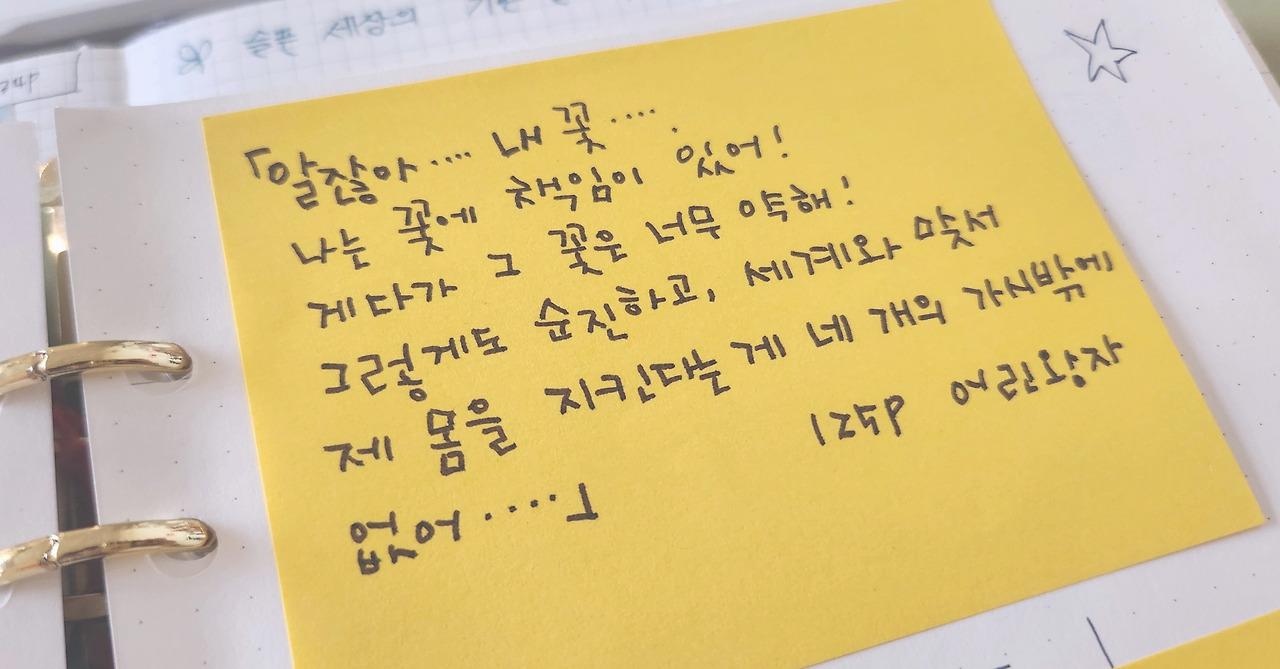 슬픈 세상의 기쁜
「알잖아···· 내 꽃····.
나는 꽃에 책임이 있어!
게다가 그 꽃은 너무 약해!
그렇게도 순진하고, 세계와 맞서
제 몸을 지킨다는 게 네 개의 가시밖에
없어····」
125P 어린왕자